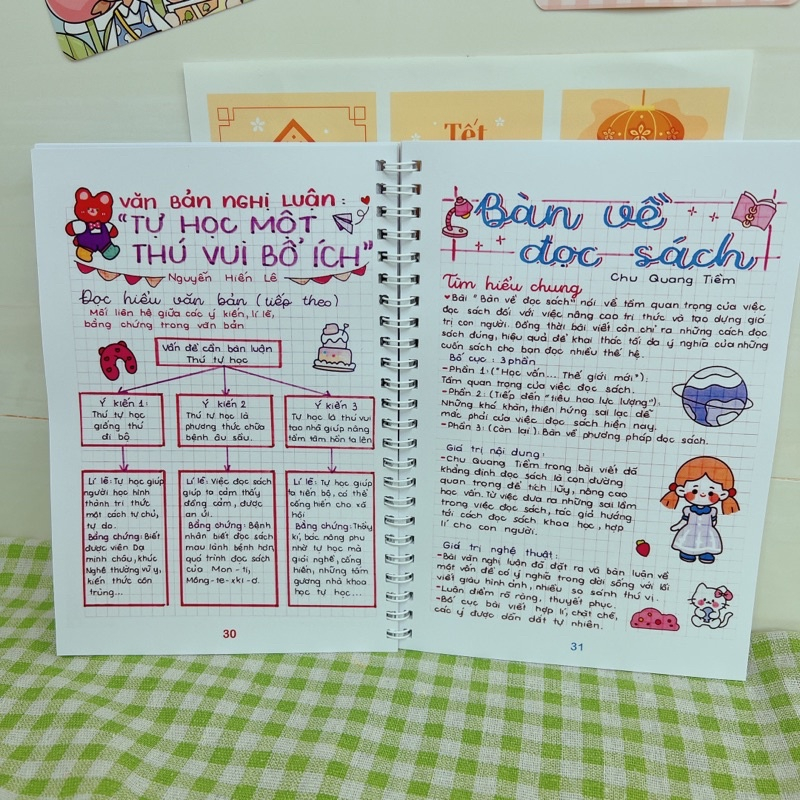 Tết
VĂN BẢN NGHỊ LUẬN:
"TỰ HỌC MỘT
THÚ VUI BỔ ÍCH"
Nguyễn Hiến Lê
Đọc hiểu văn bản (tiếp theo)
Mối liên hệ giữa các ý kiến, lí lẽ,
bằng chứng trong văn bản
Vấn đề cần bàn luận
Thú tự học
Ý kiến 1:
Thú tự học
giống thú
đi bộ
Ý kiến 2
Thú tự học là
phương thức chữa
bệnh âu sầu.
Ý kiến 3
Tự học là thú vui
tao nhã giúp nâng
tâm tâm hồn ta lên
Lí lẽ: Tự học giúp
người học hình
thành tri thức
một cách tự chủ,
tự do.
Bằng chứng: Biết
được viên Dạ
minh châu, khúc
Nghê thường vũ y,
kiến thức côn
trùng...
Lí lẽ: Việc đọc sách
giúp ta cảm thấy
đồng cảm, được
an ủi.
Bằng chứng: Bệnh
nhân biết đọc sách
mau lành bệnh hơn,
quá trình đọc sách
của Mon-ti,
Mông-te-xki-ơ.
Lí lẽ: Tự học giúp
ta tiến bộ, có thể
cống hiến cho xã
hội
Bằng chứng: Thầy
kí, bác nông phu
nhờ tự học mà
giỏi nghề, cống
hiến, những tấm
gương nhà khoa
học tự học...
30
Bàn về
đọc sách
Chu Quang Tiềm
Tìm hiểu chung
Bài "Bàn về đọc sách" nói về tầm quan trọng của việc
đọc sách đối với việc nâng cao tri thức và tạo dựng giá
trị con người. Đồng thời bài viết còn chỉ ra những cách đọc
sách đúng, hiệu quả để khai thác tối đa ý nghĩa của những
cuốn sách cho bạn đọc nhiều thế hệ.
Bố cục: 3 phần
-Phần 1: ("Học vấn... Thế giới mới"):
Tầm quan trọng của việc đọc sách.
-Phần 2: (Tiếp đến "tiêu hao lực lượng"):
Những khó khăn, thiên hướng sai lạc dễ
mắc phải của việc đọc sách hiện nay.
-Phần 3: (Còn lại). Bàn về phương pháp đọc sách.
Giá trị nội dung:
-Chu Quang Tiềm trong bài viết đã
khẳng định đọc sách là con đường
quan trọng để tích lũy, nâng cao
học vấn. Từ việc đưa ra những sai lầm
trong việc đọc sách, tác giả hướng
tới cách đọc sách khoa học, hợp
lí cho con người.
Giá trị nghệ thuật:
-Bài văn nghị luận đã đặt ra và bàn luận về
một vấn đề có ý nghĩa trong đời sống với lối
viết giàu hình ảnh, nhiều so sánh thú vị.
-Luận điểm rõ ràng, thuyết phục.
-Bố cục bài viết hợp lí, chặt chẽ,
các ý được dẫn dắt tự nhiên.
31